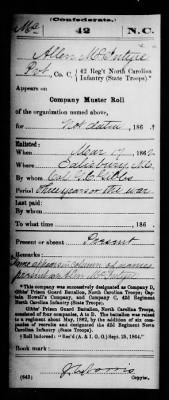 (Confederate.)
Mc 42 N.C.
Allen McIntyre
Pvt, Co. C, 42 Reg't North Carolina
Infantry (State Troops).*
Appears on
Company Muster Roll
of the organization named above,
for Not dated, 186 .
Enlisted:
When Mar 17, 1862
Where Salisbury N.C.
By whom Col. G.C. Gibbs
Period three years or the war
Last paid:
By whom
To what time , 186 .
Present or absent Present
Remarks:
Name appears column of names
present as Alen McIntyre
*This company was successively designated as Company D,
Gibbs' Prison Guard Battalion, North Carolina Troops; Captain
Howell's Company, and Company C, 42d Regiment
North Carolina Infantry (State Troops).
Gibbs' Prison Guard Battalion, North Carolina Troops,
consisted of four companies, A to D. The battalion was raised
to a regiment about May, 1862, by the addition of six companies
of recruits and designated the 42d Regiment North Carolina
Infantry (State Troops).
†Roll indorsed: "Rec'd (A. & I. O.) Sept. 25, 1864."
Book mark:
(642) Morris
Copyist.